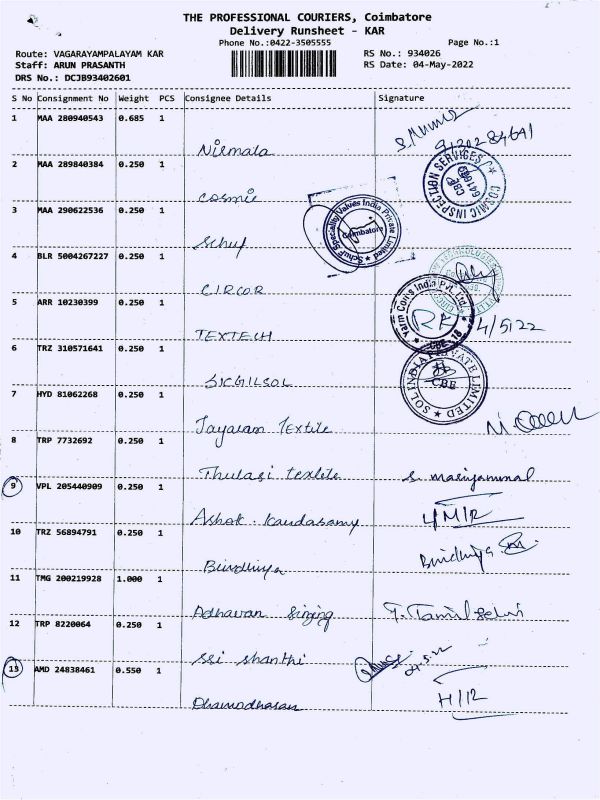 THE PROFESSIONAL COURIERS, Coimbatore
Delivery Runsheet - KAR
Phone No.:0422-3505555
Page No.:1
Route: VAGARAYAMPALAYAM KAR
RS No.: 934026
Staff: ARUN PRASANTH
RS Date: 04-May-2022
DRS No.: DCJB93402601
S No Consignment No Weight PCS Consignee Details Signature
1 MAA 280940543 0.685 1
Nirmala
2 MAA 289840384 0.250 1
COSMIC INSPECTION SERVICES
cosmic
3 MAA 290622536 0.250 1
Schuf Speciality Valves India Private Limited
Coimbatore
Schuf
4 BLR 5004267227 0.250 1
CIRCOR
5 ARR 10230399 0.250 1
India Pvt. Ltd.
CBE - 18
4/5/22
TEXTECH
6 TRZ 310571641 0.250 1
SOL INDIA PRIVATE LIMITED
CBE
SICGILSOL
7 HYD 81062268 0.250 1
Jayaram Textile
8 TRP 7732692 0.250 1
Thulasi textile S. mariyammal
9 VPL 205440909 0.250 1
Ashok. Kandasamy
10 TRZ 56894791 0.250 1
Bindhiya
11 TMG 200219928 1.000 1
Adhavan T. Tamil selvi
12 TRP 8220064 0.250 1
Sri shanthi
13 AMD 24838461 0.550 1
H/12
Dhamodharan